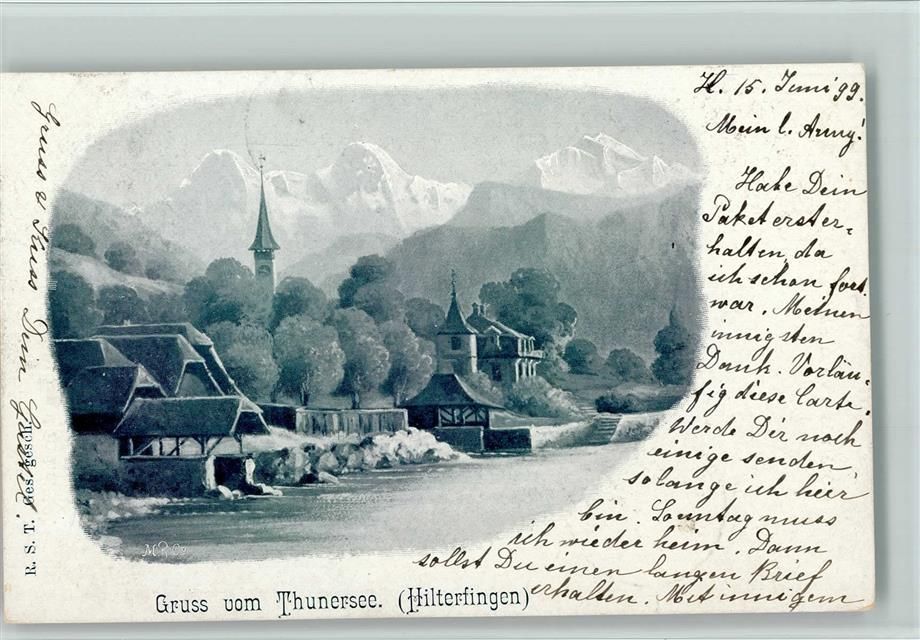 H. 15. Juni 99.
Mein l. Army!
Habe Dein
Paket erst er-
halten, da
ich schon fort
war. Meinen
innigsten
Dank. Vorläu-
fig diese Carte.
Werde Dir noch
einige senden
solange ich hier
bin. Sonntag muss
ich wieder heim. Dann
sollst Du einen langen Brief
erhalten. Mit innigem
Gruss & Kuss Dein
R. S. T. Ges. gesch.
Gruss vom Thunersee. (Hilterfingen)